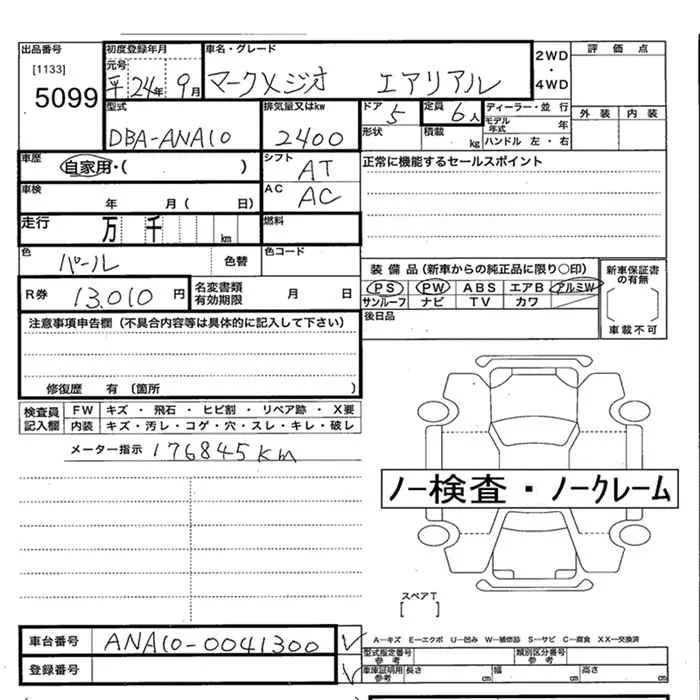 出品番号
[1133]
5099
初度登録年月
元号
平 24年 9月
車名・グレード
マークXジオ エアリアル
2WD
・
4WD
評 価 点
外 装 内 装
型式
DBA-ANA10
排気量又はkw
2400
ドア 5
定員 6人
形状
積載 kg
ディーラー・並 行
モデル年式 年
ハンドル 左・右
車歴
自家用・( )
シフト AT
AC AC
車検
年 月( 日)
走行 万 千 km
燃料
色 パール 色替
色コード
R券 13,010 円
名変書類
有効期限 月 日
正常に機能するセールスポイント
装 備 品(新車からの純正品に限り○印)
PS PW ABS エアB アルミW
サンルーフ ナビ TV カワ
新車保証書
の有無
車載不可
後日品
注意事項申告欄(不具合内容等は具体的に記入して下さい)
修復歴 有 〔箇所 )
検査員
記入欄
FW キズ ・ 飛石 ・ ヒビ割 ・ リペア跡 ・ X要
内装 キズ・汚レ・コゲ・穴・スレ・キレ・破レ
メーター指示 176845km
ノー検査・ノークレーム
スペアT
[ ]
車台番号 ANA10-0041300
登録番号
A―キズ E―エクボ U―凹み W―補修跡 S―サビ C―腐食 XX―交換済
型式指定番号
参考
類別区分番号
参考
車庫証明用
参考
長さ cm 幅 cm 高さ cm